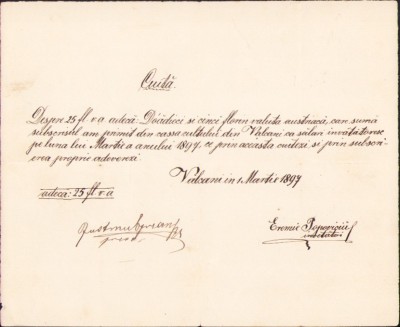 Cuită.
Despre 25 fl. v. a adecă: Dóidieci si cinci floren valuta austriacă, cari sumă
subsensul am primit din cassa cultului din Valcani ca salar invătiătoresc
pe luna lui Martie a anului 1897, ce prin aceasta cuitezi si prin subscri-
erea proprie adeveresi.
Valcani in 1. Martir 1897
adecă: 25 fl. v. a
Eremie Popoviciu
invetiator